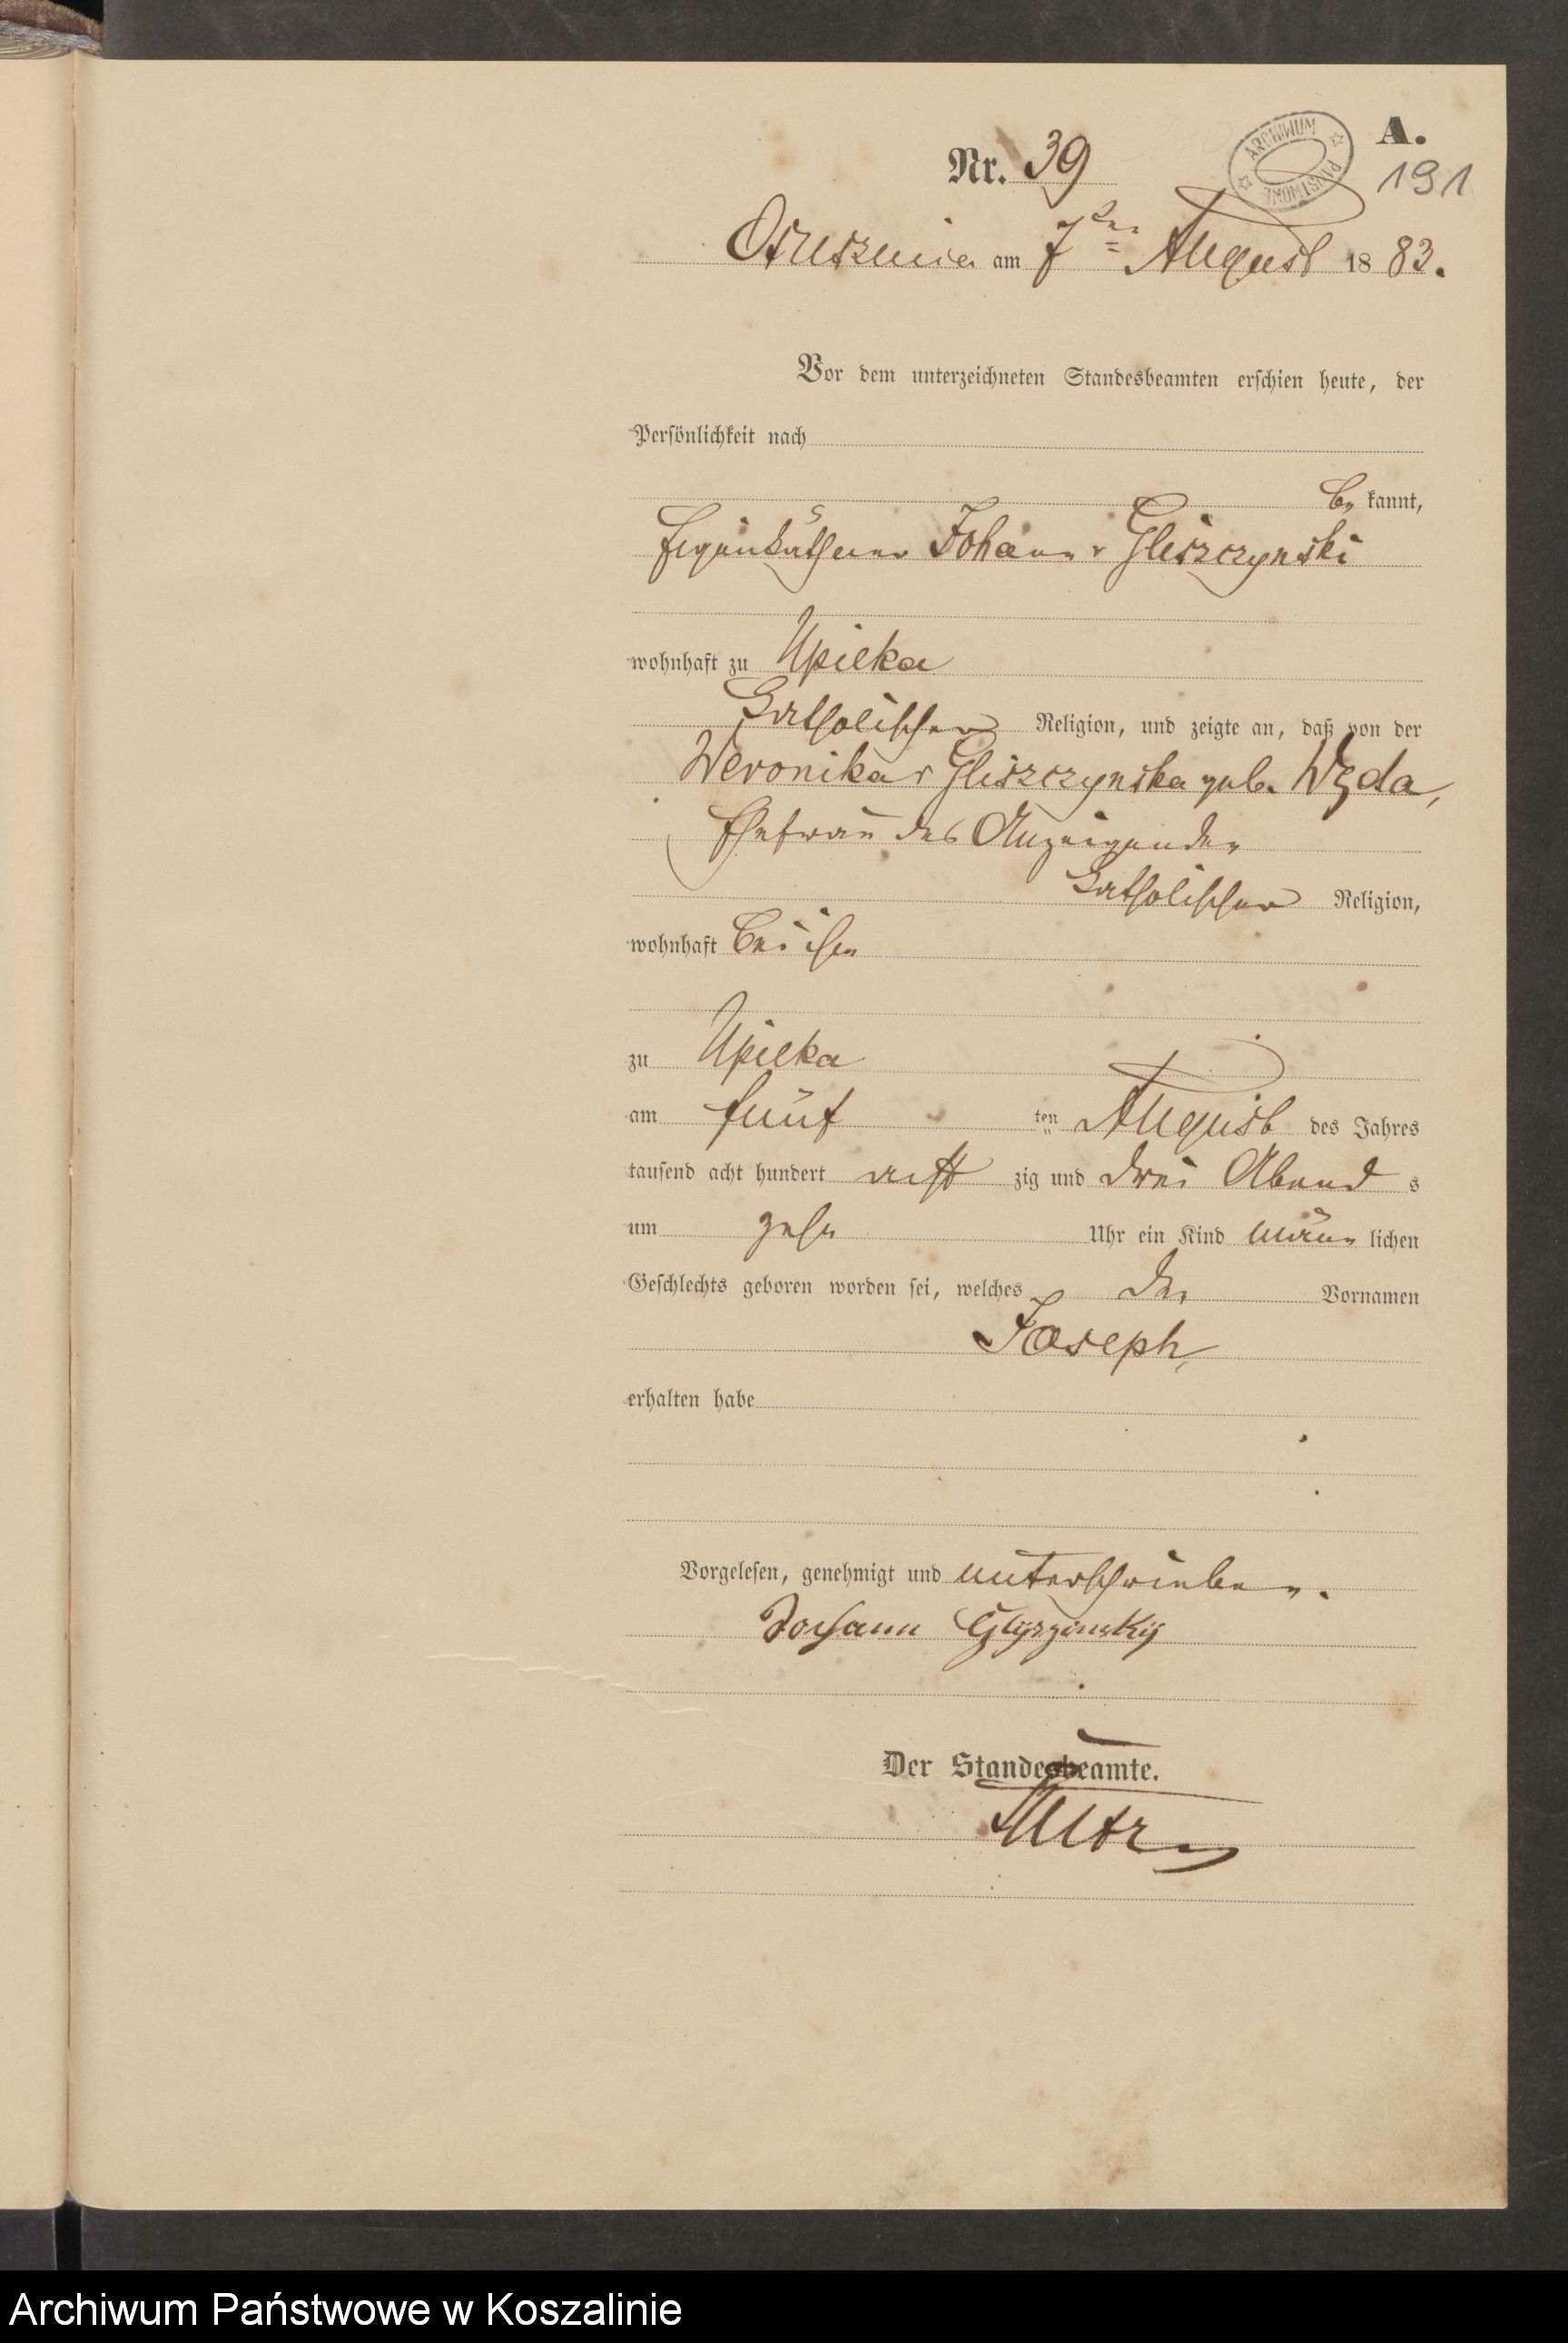 A.
Nr. 39
ARCHIWUM PAŃSTWOWE
191
Osusznica am 7ten August 1883.
Vor dem unterzeichneten Standesbeamten erschien heute, der
Persönlichkeit nach
be kannt,
Eigenkäthner Johann v Gliszczynski
wohnhaft zu Upilka
katholischer Religion, und zeigte an, daß von der
Weronika v Gliszczynska geb. Węda,
Ehefrau des Anzeigenden
katholischer Religion,
wohnhaft bei ihm
zu Upilka
am fünf ten August des Jahres
tausend acht hundert acht zig und drei Abend s
um zehn Uhr ein Kind männ lichen
Geschlechts geboren worden sei, welches den Vornamen
Joseph,
erhalten habe
Vorgelesen, genehmigt und unterschrieben.
Johann
Der Standesbeamte.
Archiwum Państwowe w Koszalinie